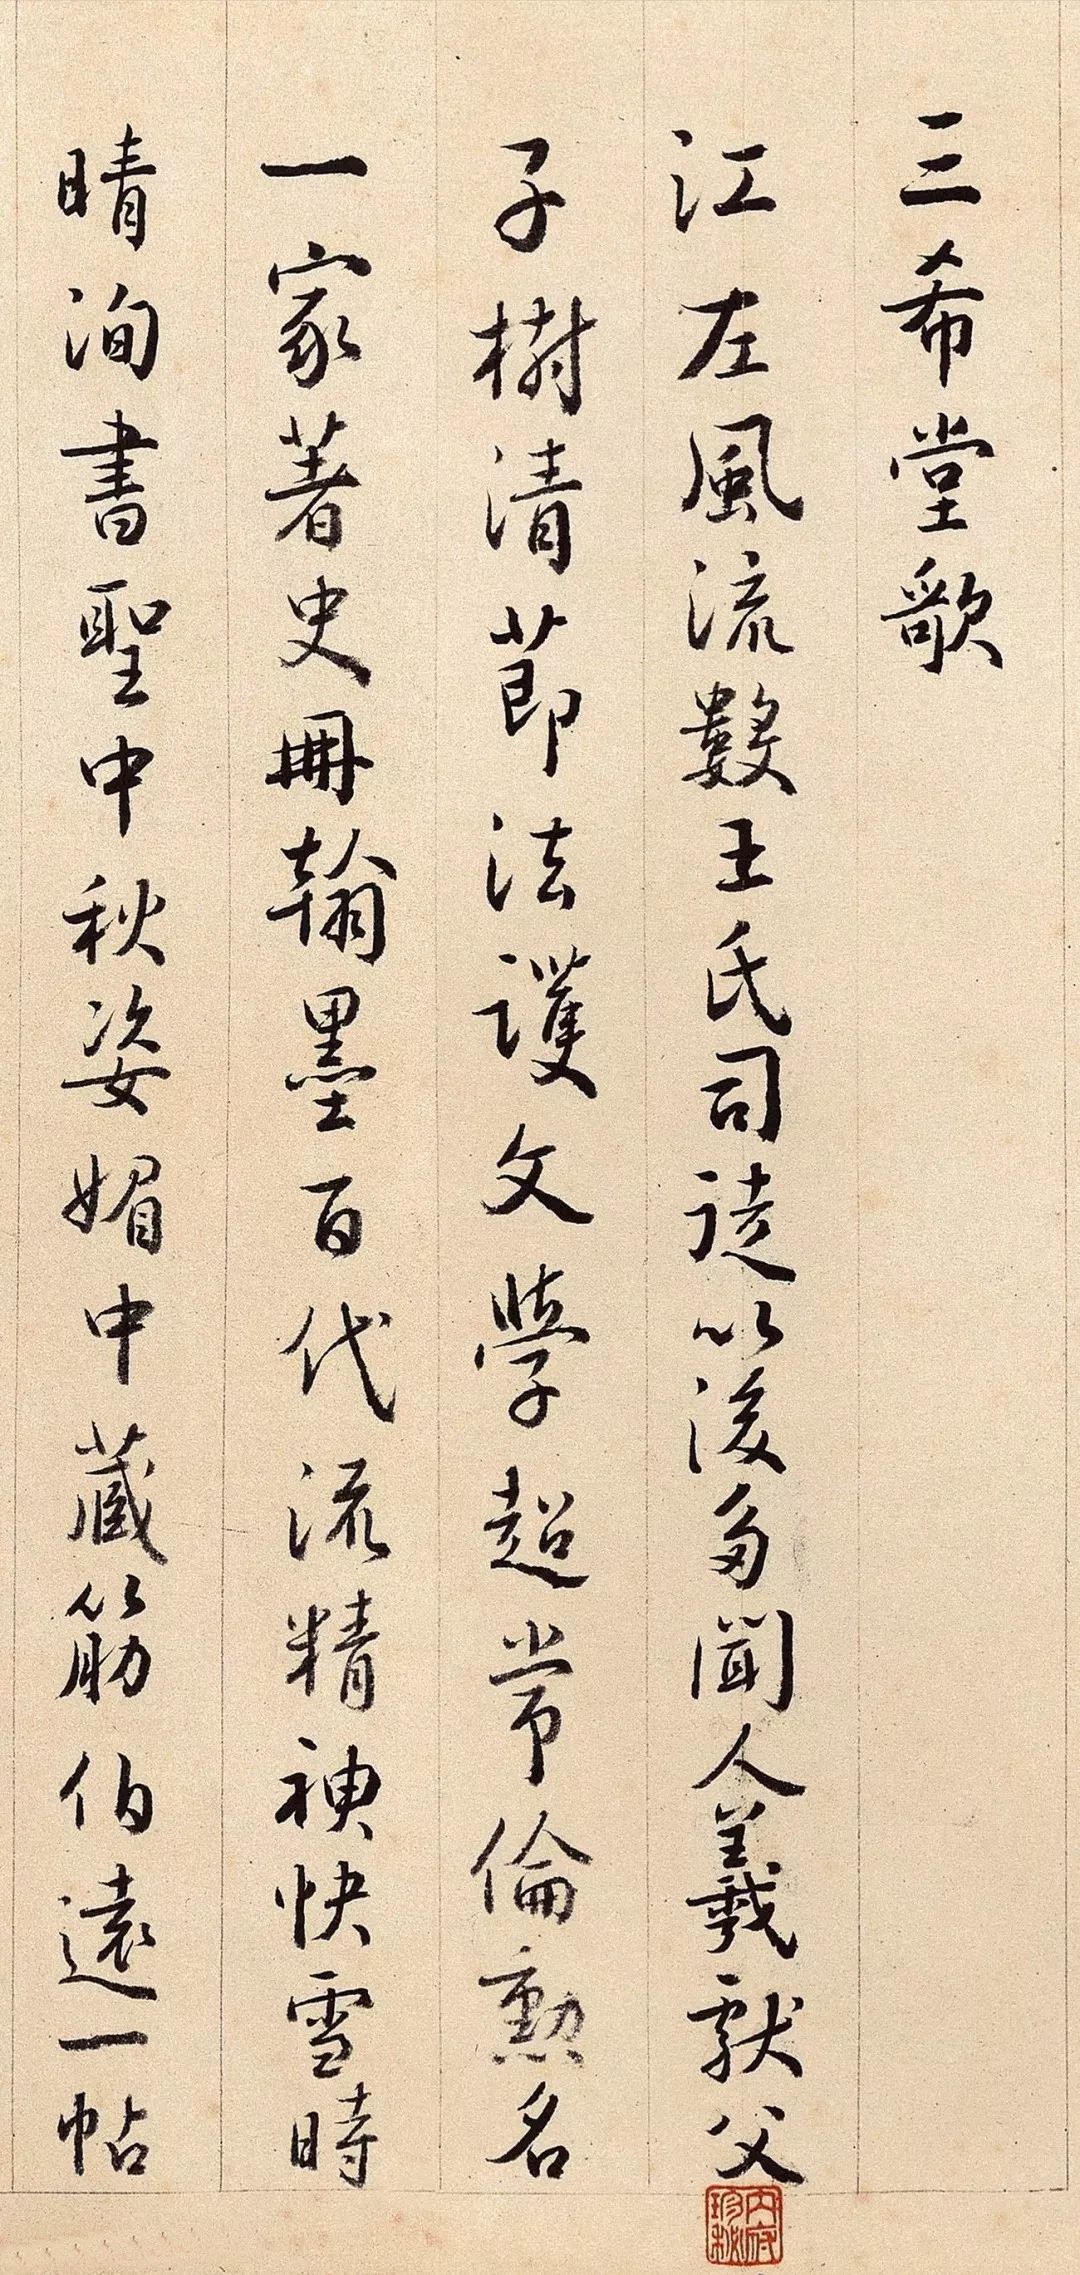 三希堂歌
江左風流數王氏司徒以後多聞人羲獻父
子樹清節法護文學超常倫勲名
一家著史冊翰墨百代流精神快雪時
晴洵書聖中秋姿媚中藏筋伯遠一帖
内府珍秘